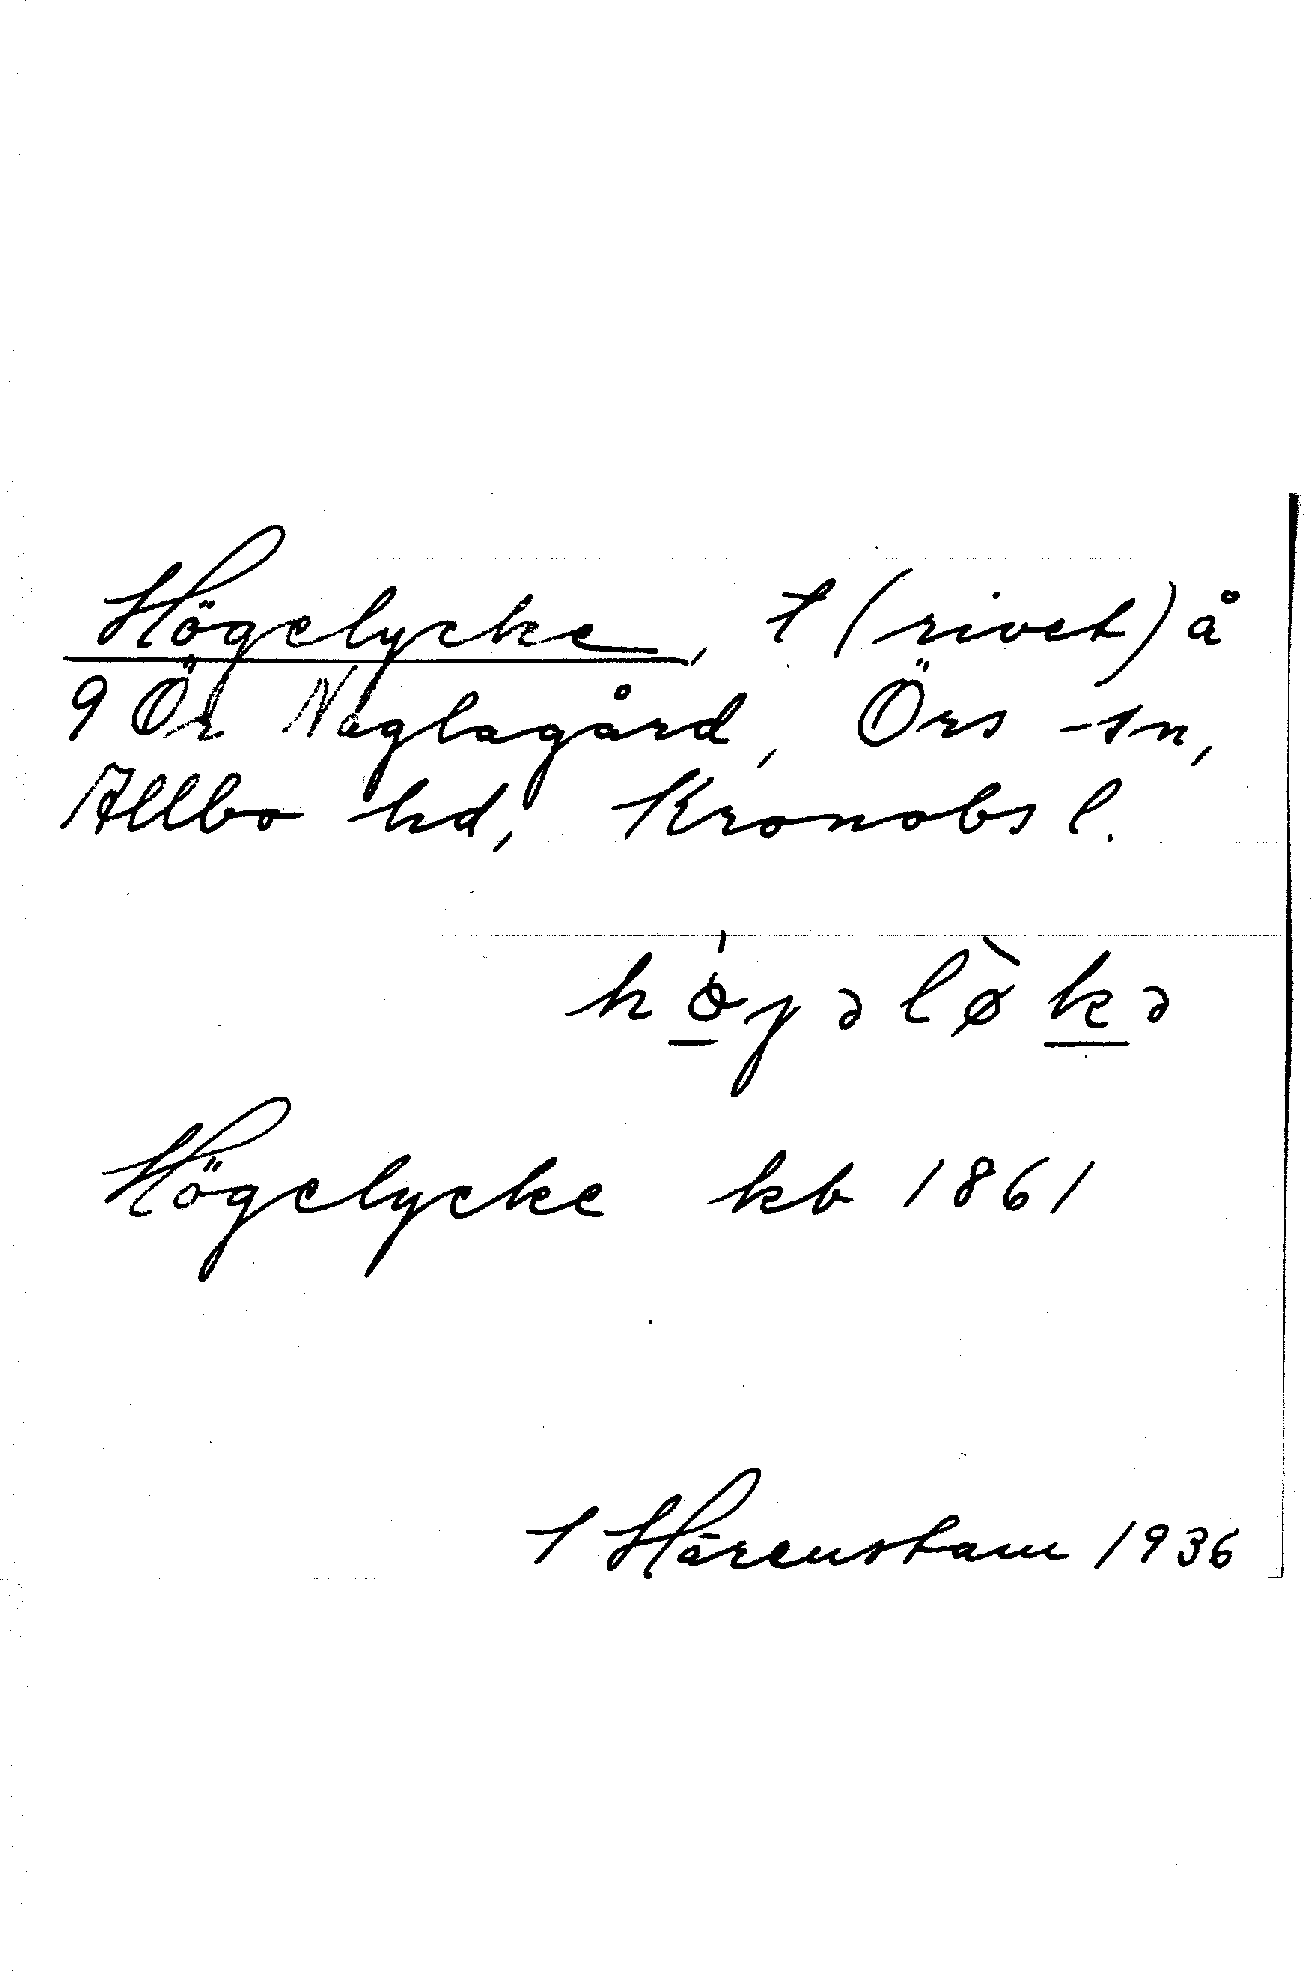 Högelycke, t (rivet) å
9 Ör Naglagård, Örs sn,
Allbo hd, Kronobs l.
hǿγəlø̀kə
Högelycke kb 1861
I Härenstam 1936